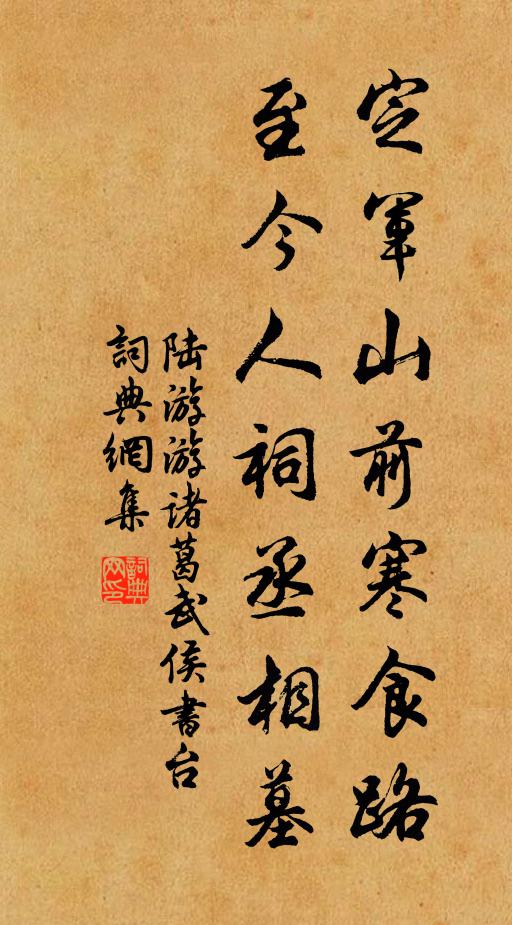 定軍山前寒食路
至今人祠丞相墓
陆游游诸葛武侯書台
詞典網集
詞典网印